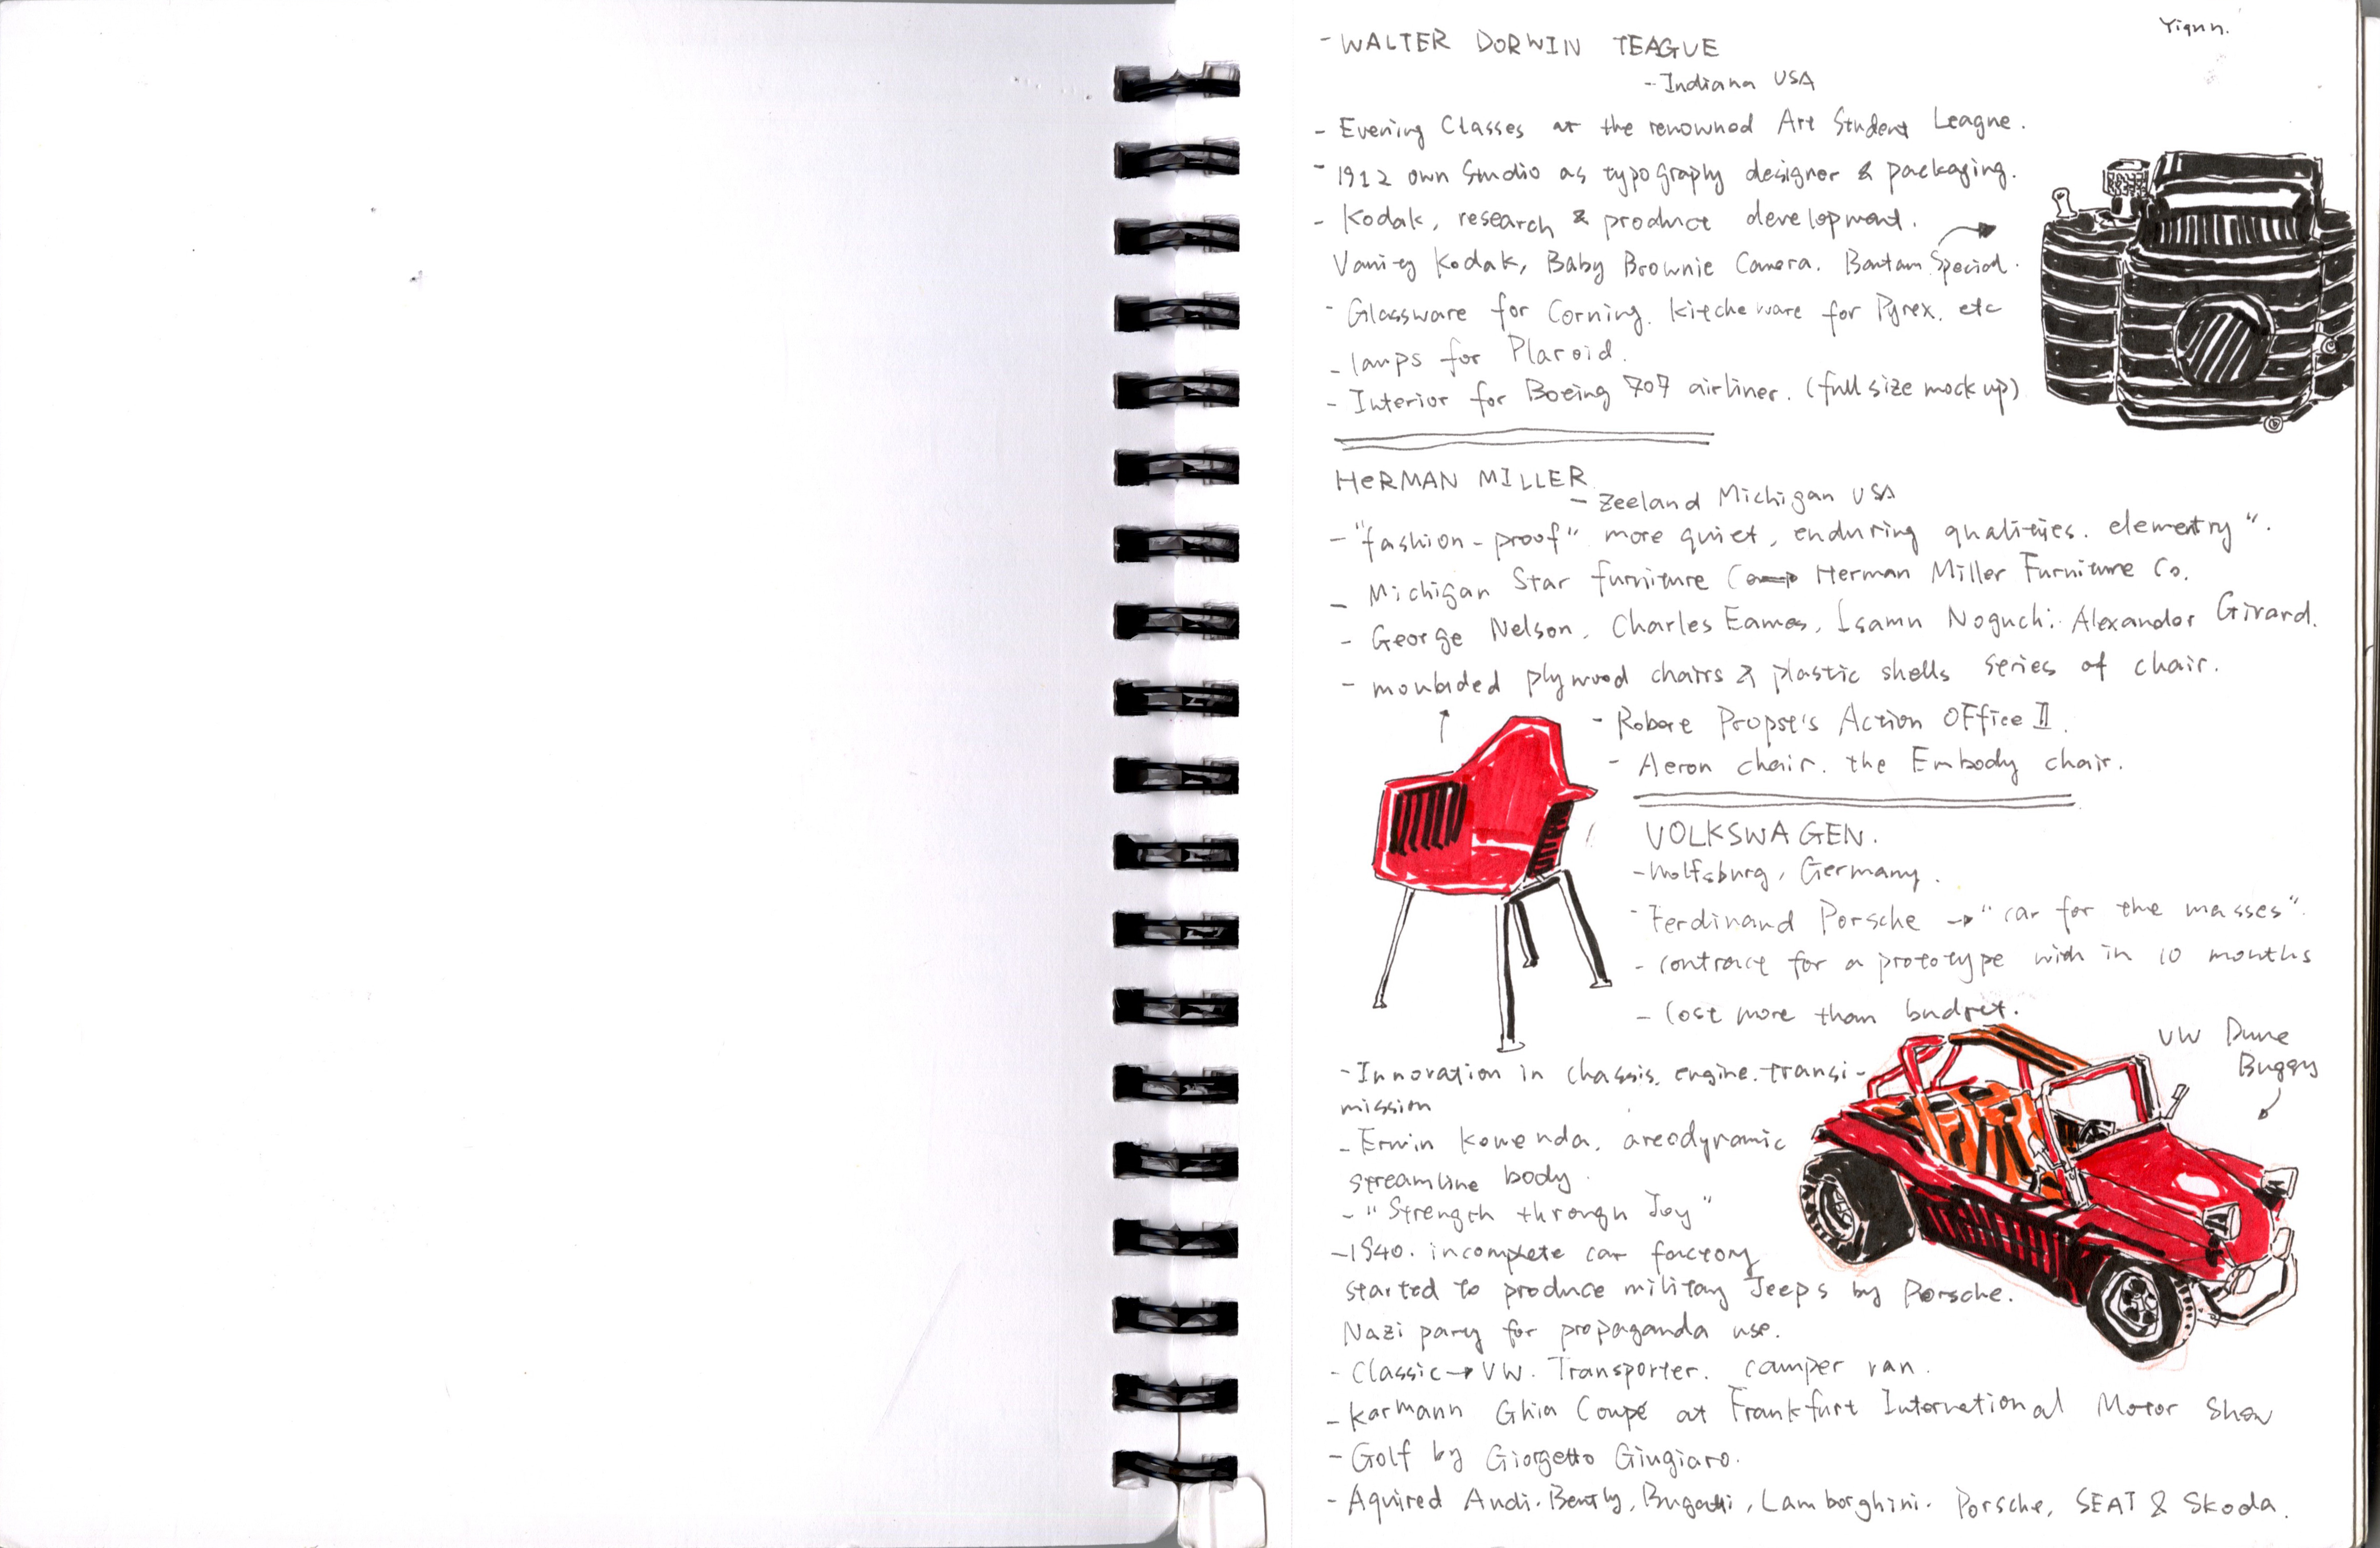 Yiqnn.
- WALTER DORWIN TEAGUE
- Indiana USA
- Evening Classes at the renownod Art Student League.
- 1912 own Studio as typography designer & packaging.
- Kodak, research & product development.
Vanity Kodak, Baby Brownie Camera. Bantam Special.
- Glassware for Corning. kitcheware for Pyrex. etc
- lamps for Plaroid.
- Interior for Boeing 707 airliner. (full size mock up)
HeRMAN MILLER
- Zeeland Michigan USA
- "fashion-proof" more quiet, enduring qualities. elementry".
- Michigan Star furniture Co → Herman Miller Furniture Co.
- George Nelson, Charles Eames, Isamu Noguchi. Alexander Girard.
- moulded plywood chairs & plastic shells series of chair.
- Robert Propst's Action OFfice II.
- Aeron chair. the Embody chair.
VOLKSWAGEN.
- Wolfsburg, Germany.
- Ferdinand Porsche → "car for the masses".
- contract for a prototype with in 10 months
- Cost more than budget.
VW Dune
Buggy
- Innovation in chassis, engine. transi-
mission
- Erwin Komenda. areodynamic
streamline body.
- "Strength through Joy"
- 1940. incomplete car factory
started to produce military Jeeps by Porsche.
Nazi party for propaganda use.
- Classic → VW. Transporter. camper van.
- Karmann Ghia Coupé at Frankfurt International Motor Show
- Golf by Giorgetto Giugiaro.
- Aquired Audi. Bently, Bugatti, Lamborghini. Porsche, SEAT & Skoda.